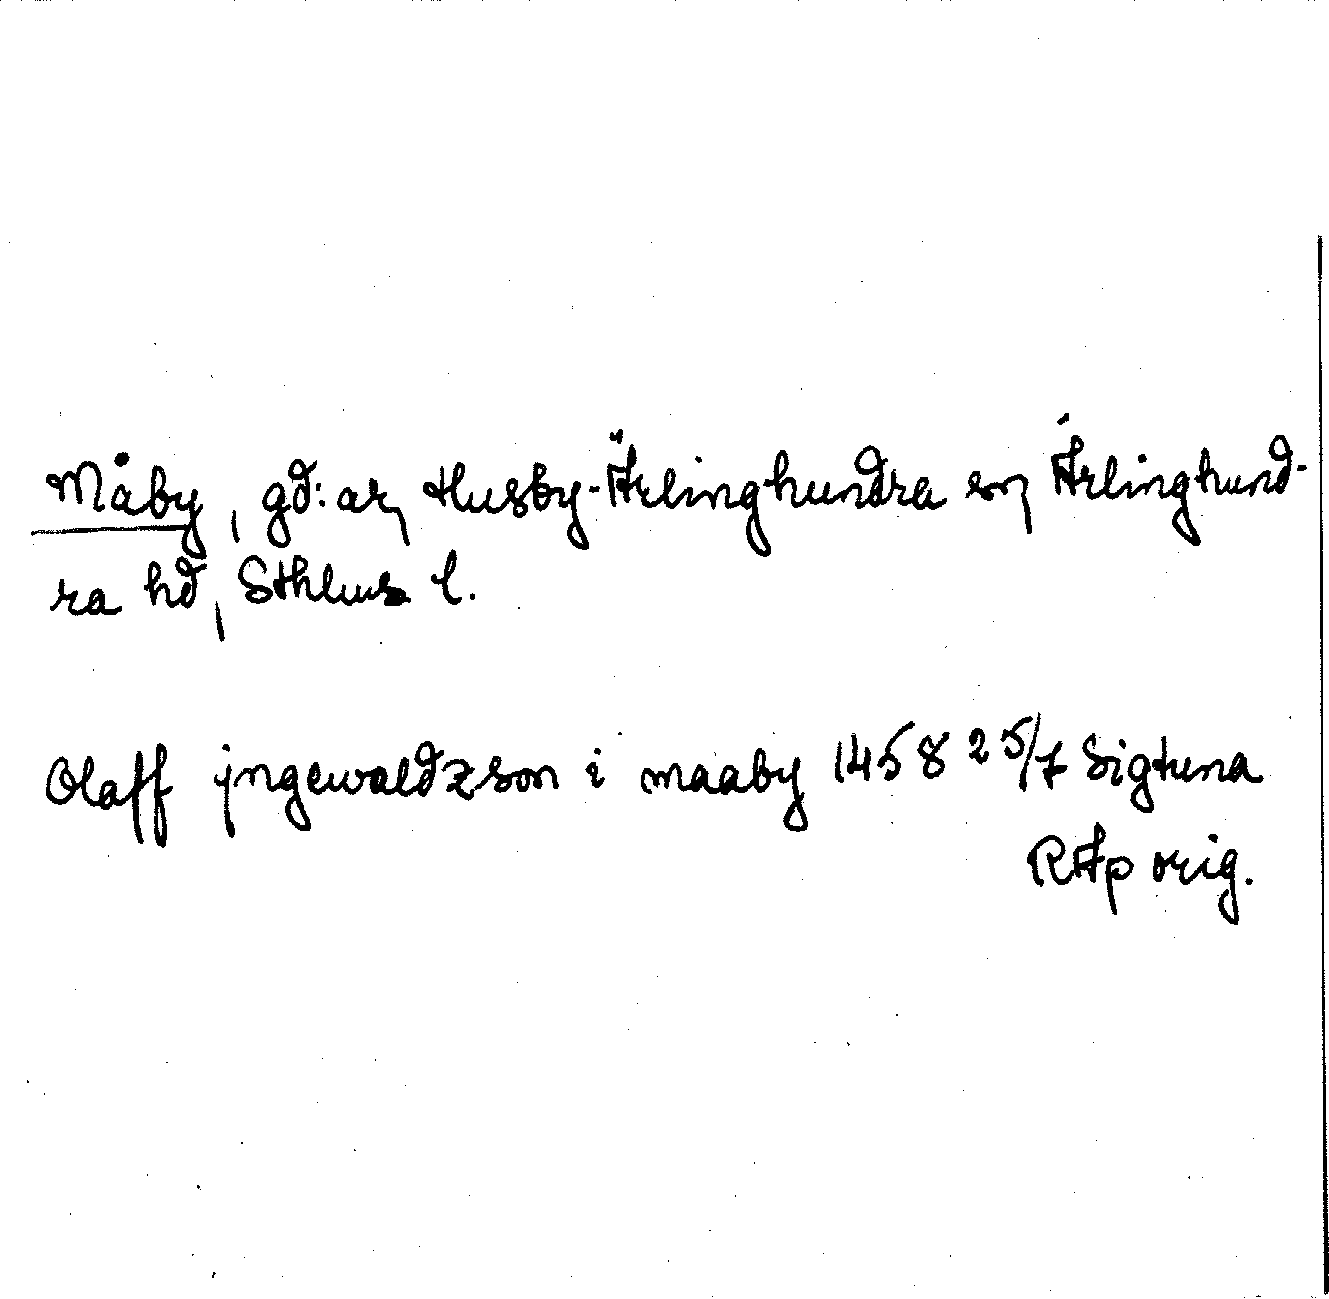 Måby, gd:ar, Husby-Ärlinghundra sn, Ärlinghund-
ra hd, Sthlms l.
Olaff jngewaldzson i maaby 1458 25/7 Sigtuna
RAp orig.